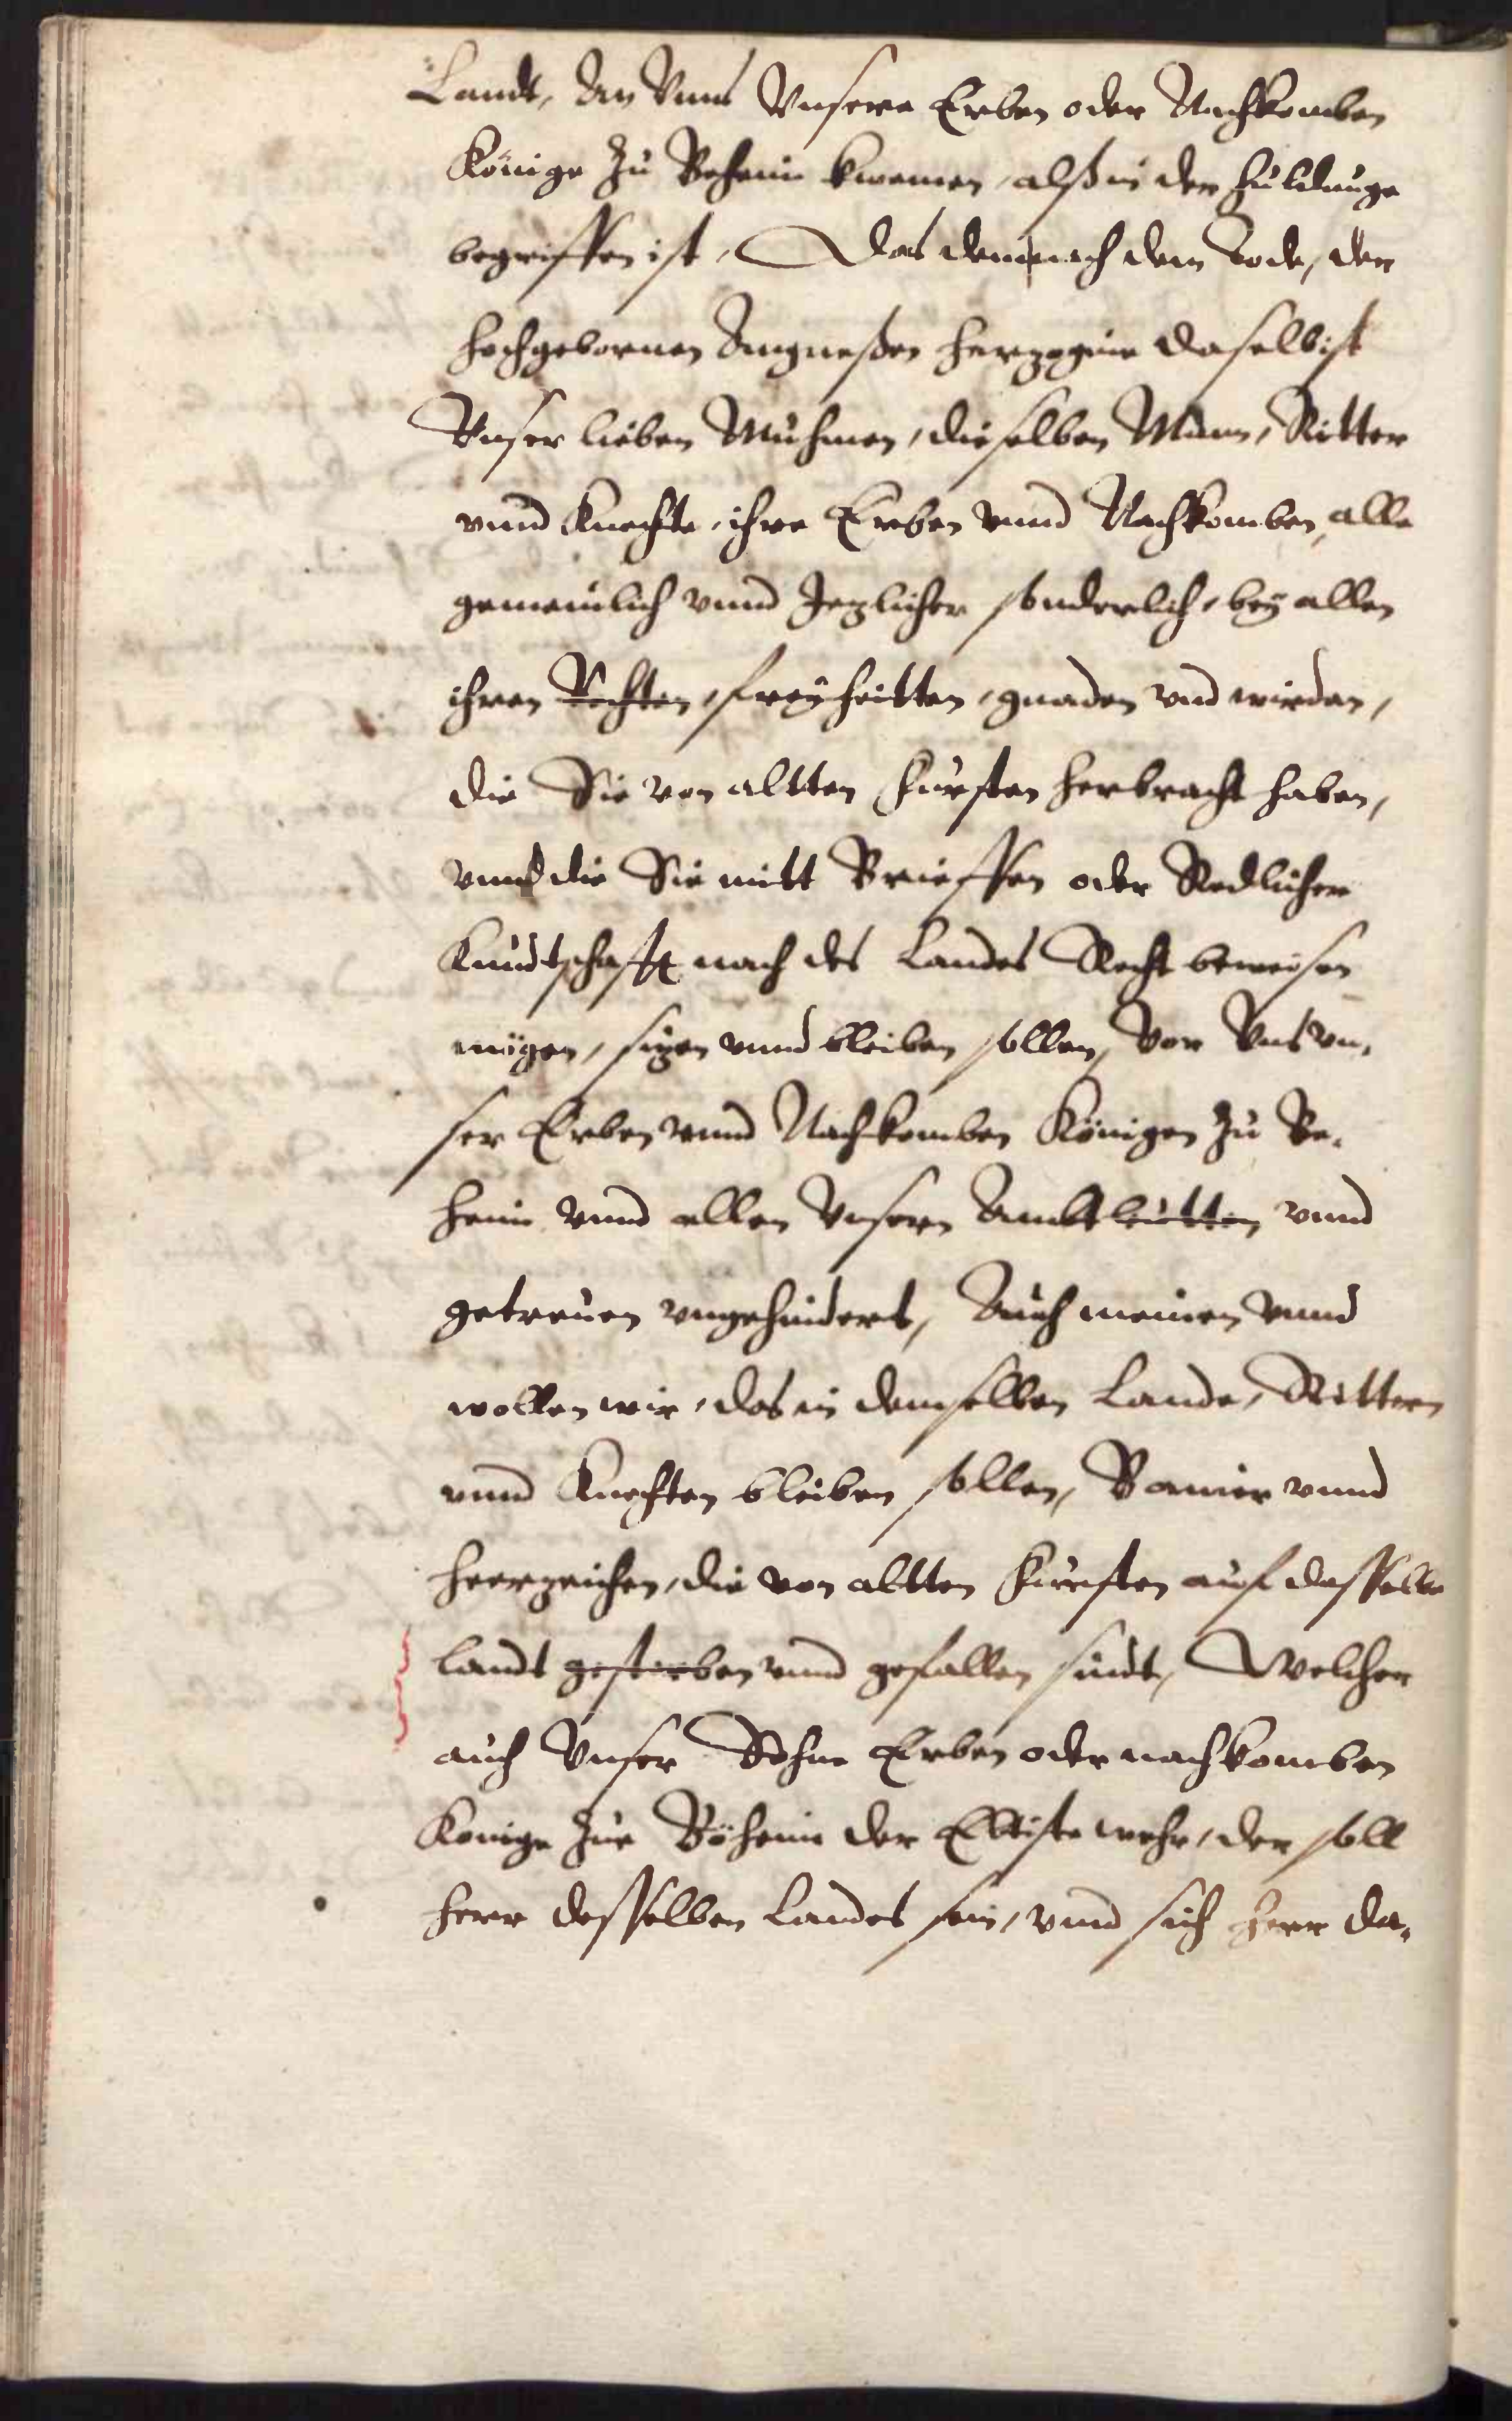 Landt, An Vnns Vnsere Erben oder Nachkomben
Könige zu Beheim kwemen, alß in der huldunge
begriffen ist, Das dem nach dem Tode, der
hochgebornen Angneßen herzogin daselbist
Vnser lieben Muhmen, dieselben Mann, Ritter
vnnd Knechte, ihre Erben vnnd Nachkomben, alle
gemeinlich vnnd Jezlicher sonderlich, beÿ allen
ihren Rechten, freÿheitten, gnaden vnd wirden,
die Sie von altten fursten herbracht haben,
vnnd die Sie mitt Brieffen oder Redlicher
Kundtschafft nach des Landes Recht beweisen
mögen, sizen vnnd bleiben sollen, Vor Vns vn,
ser Erben vnnd Nachkomben Königen zu Be,
heim vnnd allen Vnsern Ambtleutten vnnd
getreuen vngehindert, Auch meinen vnnd
wollen wir, das in demselben Lande, Rittern
vnnd Knechten bleiben sollen, Banier vnnd
heerzeichen, die von altten fursten auf dasselbe
landt gestorben vnnd gefallen sindt, Welcher
auch Vnser Sohne Erben oder nachkomben
Konige zue Böheim der Eltiste wehre, der soll
herr desselben Landes sein, vnnd sich herr da,